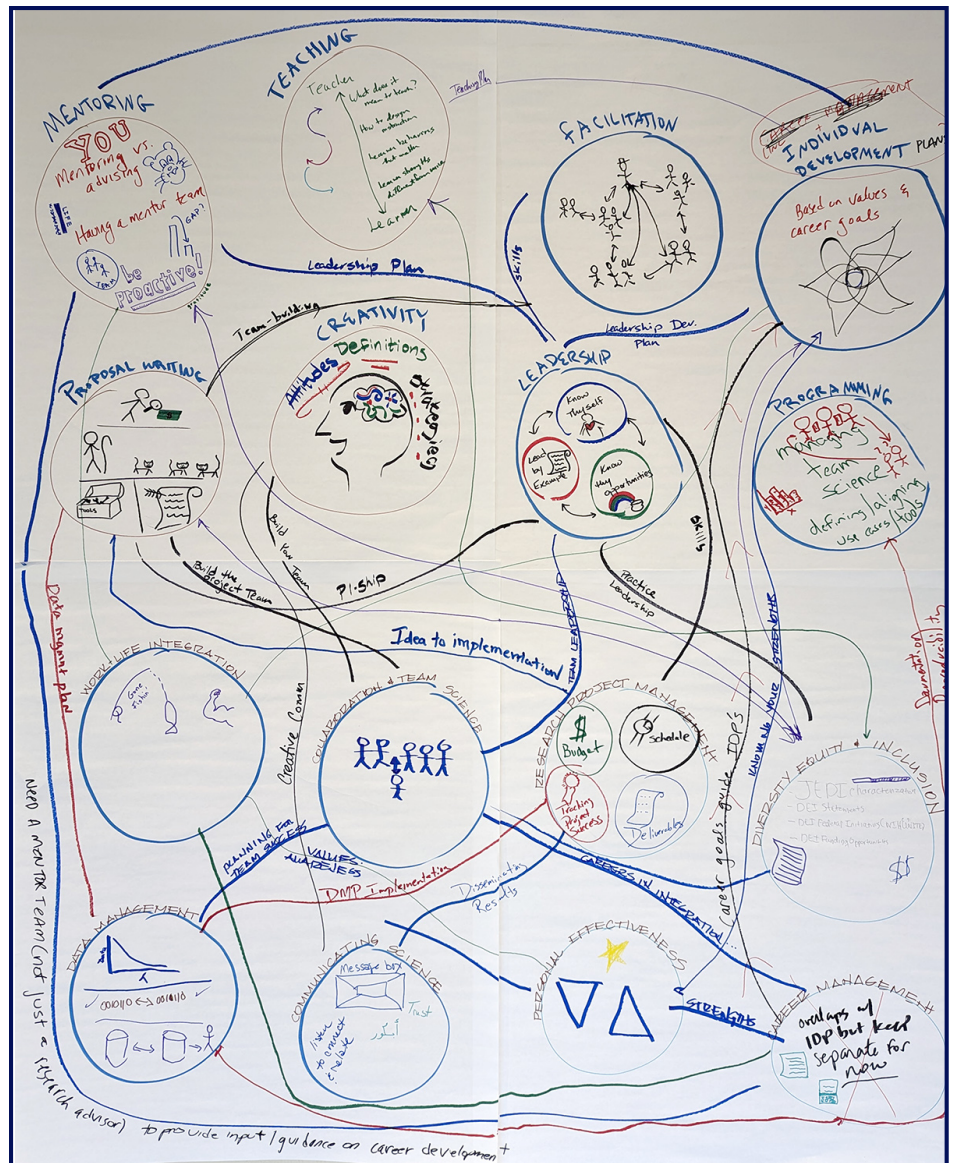 MENTORING
YOU
Mentoring vs.
advising
Having a mentor team
GAP?
TEAM
be
PROACTIVE!
TEACHING
Teacher
What does it
mean to teach?
How to design
instruction
Learner
Teaching Plan
FACILITATION
INDIVIDUAL
DEVELOPMENT PLANS
Based on values &
career goals
Leadership Plan
Skills
Team-building
Leadership Dev.
Plan
PROPOSAL WRITING
TOOLS
CREATIVITY
Definitions
Attitudes
Strategies
LEADERSHIP
Know
thyself
Lead
by
Example
Know
thy opportunities
PROGRAMMING
managing
team
science
defining/aligning
use cases/tools
Build the
project Team
Build Your Team
PI-ship
Skills
Practice
Leadership
Data mgmnt plan
Idea to implementation
TEAM LEADERSHIP
KNOWING YOUR STRENGTHS
WORK+LIFE INTEGRATION
Creative Comm
COLLABORATION & TEAM SCIENCE
RESEARCH PROJECT MANAGEMENT
$
Budget
Schedule
Tracking
Project
Success
Deliverables
career goals guide IDP'S
DIVERSITY EQUITY & INCLUSION
JEDI characteristics
- DEI Statements
- DEI Funding Opportunities
$$
PLANNING FOR
TEAM SUCCESS
VALUES:
AWARENESS
DMP Implementation
Dissemination
Results
CAREERS IN INTEGRATION...
DATA MANAGEMENT
COMMUNICATING SCIENCE
Message box
Trust
listen
to connect
& relate
PERSONAL EFFECTIVENESS
STRENGTHS
CAREER MANAGEMENT
overlaps w/
IDP but keep
separate for
now
NEED A MENTOR TEAM (not just a research advisor) to provide input/guidance on career development